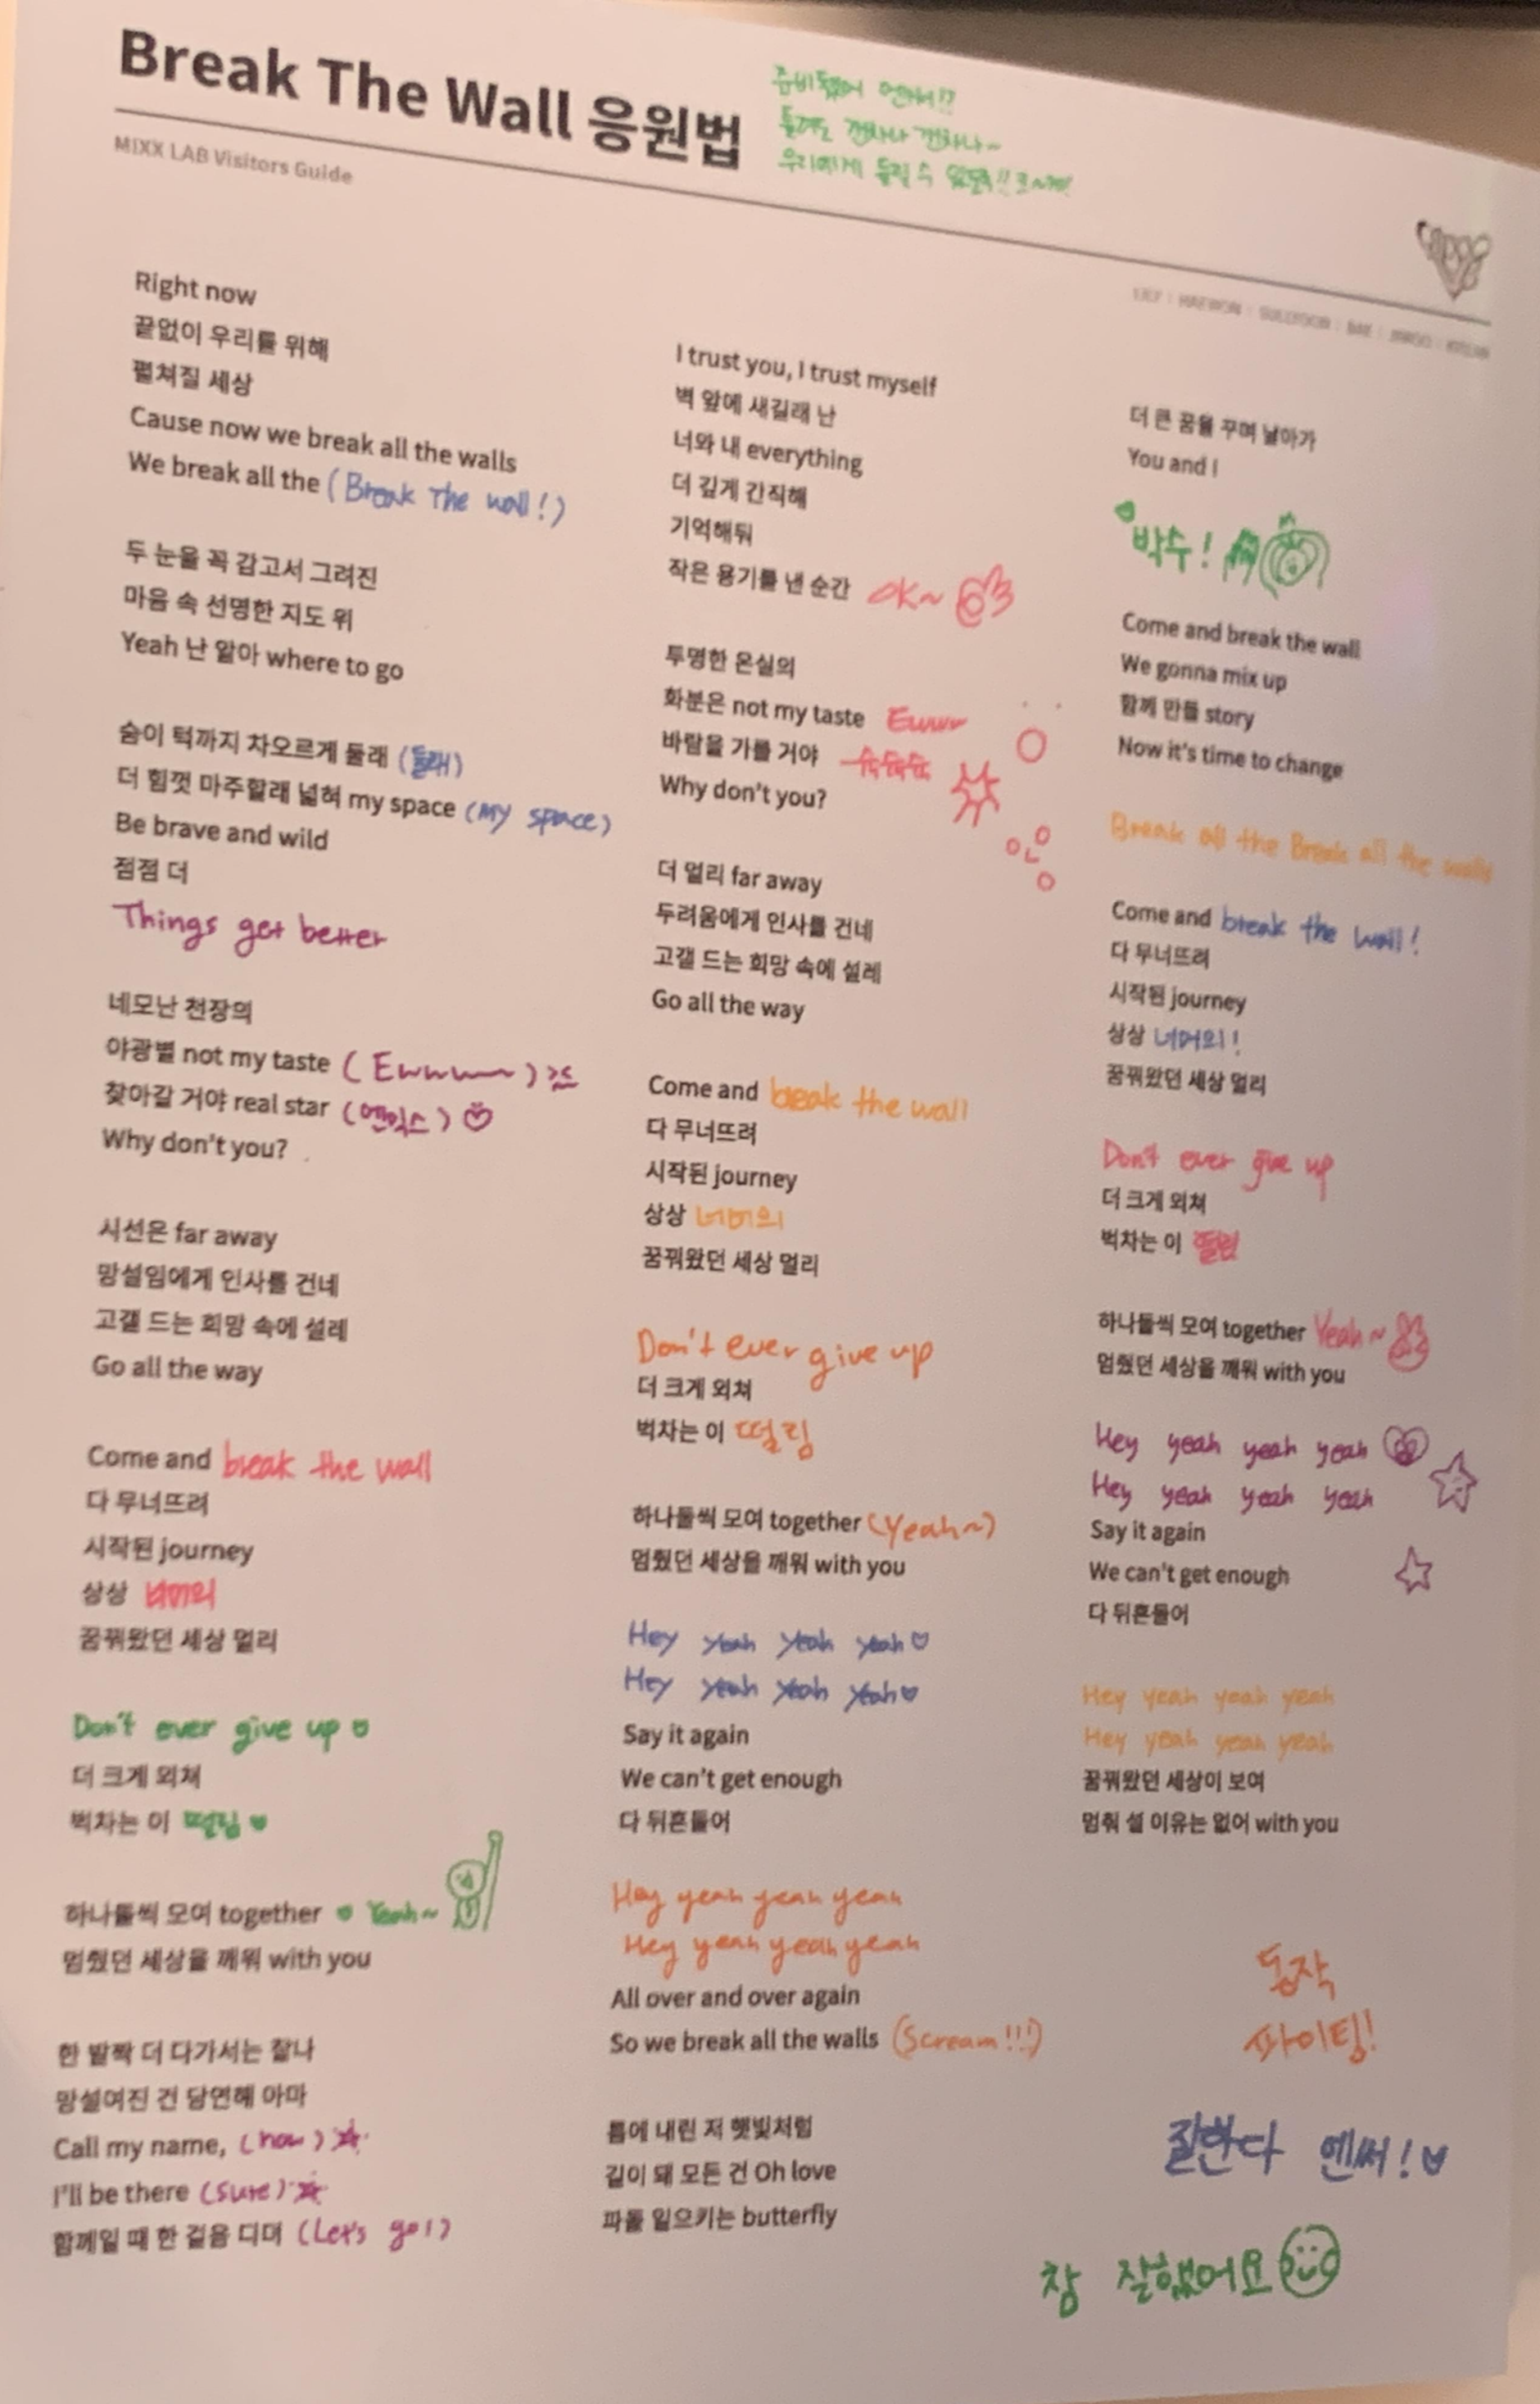 Break The Wall 응원법
준비됐어 엔써!?
틀려도 괜찮나 괜찮나~
우리에게 들릴 수 있도록!! 크~게!
MIXX LAB Visitors Guide
LILY HAEWON SULLYOON BAE JIWOO KYUJIN
Right now
끝없이 우리를 위해
펼쳐질 세상
Cause now we break all the walls
We break all the (Break The wall!)
두 눈을 꼭 감고서 그려진
마음 속 선명한 지도 위
Yeah 난 알아 where to go
숨이 턱까지 차오르게 둘래 (둘래)
더 힘껏 마주할래 넓혀 my space (My space)
Be brave and wild
점점 더
Things get better
네모난 천장의
야광별 not my taste (Ewwww~)
찾아갈 거야 real star (엔믹스)
Why don't you?
시선은 far away
망설임에게 인사를 건네
고갤 드는 희망 속에 설레
Go all the way
Come and break the wall
다 무너뜨려
시작된 journey
상상 너머의
꿈꿔왔던 세상 멀리
Don't ever give up
더 크게 외쳐
벅차는 이 떨림
하나둘씩 모여 together Yeah~
멈췄던 세상을 깨워 with you
한 발짝 더 다가서는 찰나
망설여진 건 당연해 아마
Call my name, (now)
I'll be there (Sure)
함께일 때 한 걸음 디뎌 (Let's go!)
I trust you, I trust myself
벽 앞에 새길래 난
너와 내 everything
더 깊게 간직해
기억해둬
작은 용기를 낸 순간 OK~
투명한 온실의
화분은 not my taste Ewww
바람을 가를 거야 슉슉슉
Why don't you?
더 멀리 far away
두려움에게 인사를 건네
고갤 드는 희망 속에 설레
Go all the way
Come and break the wall
다 무너뜨려
시작된 journey
상상 너머의
꿈꿔왔던 세상 멀리
Don't ever give up
더 크게 외쳐
벅차는 이 떨림
하나둘씩 모여 together (Yeah~)
멈췄던 세상을 깨워 with you
Hey yeah yeah yeah
Hey yeah yeah yeah
Say it again
We can't get enough
다 뒤흔들어
Hey yeah yeah yeah
Hey yeah yeah yeah
All over and over again
So we break all the walls (Scream!!!)
틈에 내린 저 햇빛처럼
길이 돼 모든 건 Oh love
파돌 일으키는 butterfly
더 큰 꿈을 꾸며 날아가
You and I
박수!
Come and break the wall
We gonna mix up
함께 만들 story
Now it's time to change
Break all the Break all the walls
Come and break the wall!
다 무너뜨려
시작된 journey
상상 너머의!
꿈꿔왔던 세상 멀리
Don't ever give up
더 크게 외쳐
벅차는 이 떨림
하나둘씩 모여 together Yeah~
멈췄던 세상을 깨워 with you
Hey yeah yeah yeah
Hey yeah yeah yeah
Say it again
We can't get enough
다 뒤흔들어
Hey yeah yeah yeah
Hey yeah yeah yeah
꿈꿔왔던 세상이 보여
멈춰 설 이유는 없어 with you
동작
파이팅!
잘한다 엔써!
참 잘했어요